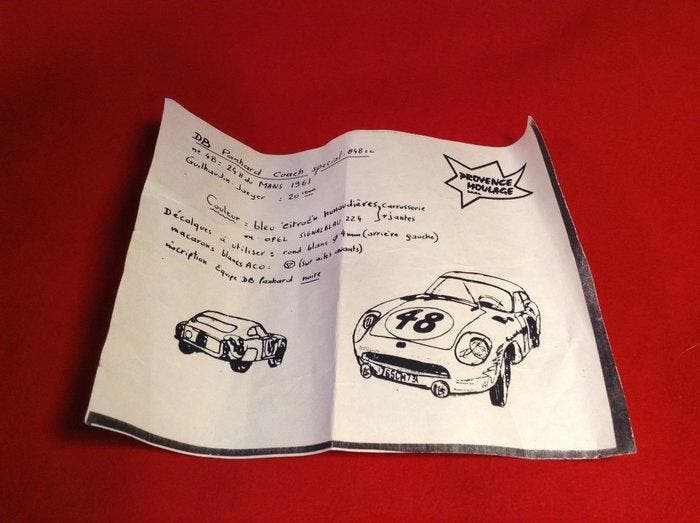 DB Panhard Coach special. 848cc
n° 48: 24H du MANS 1961
Guilhaudin-Jaeger : 20 ieme
PROVENCE
MOULAGE
Couleur = bleu Citroën Hunaudières carrosserie
ou OPEL SIGNALBLAU 224 + jantes
Décalques à utiliser : rond blanc ø 4mm (arrière gauche)
macarons blancs ACO : (sur ailes avants)
inscription Équipe DB Panhard noire
48